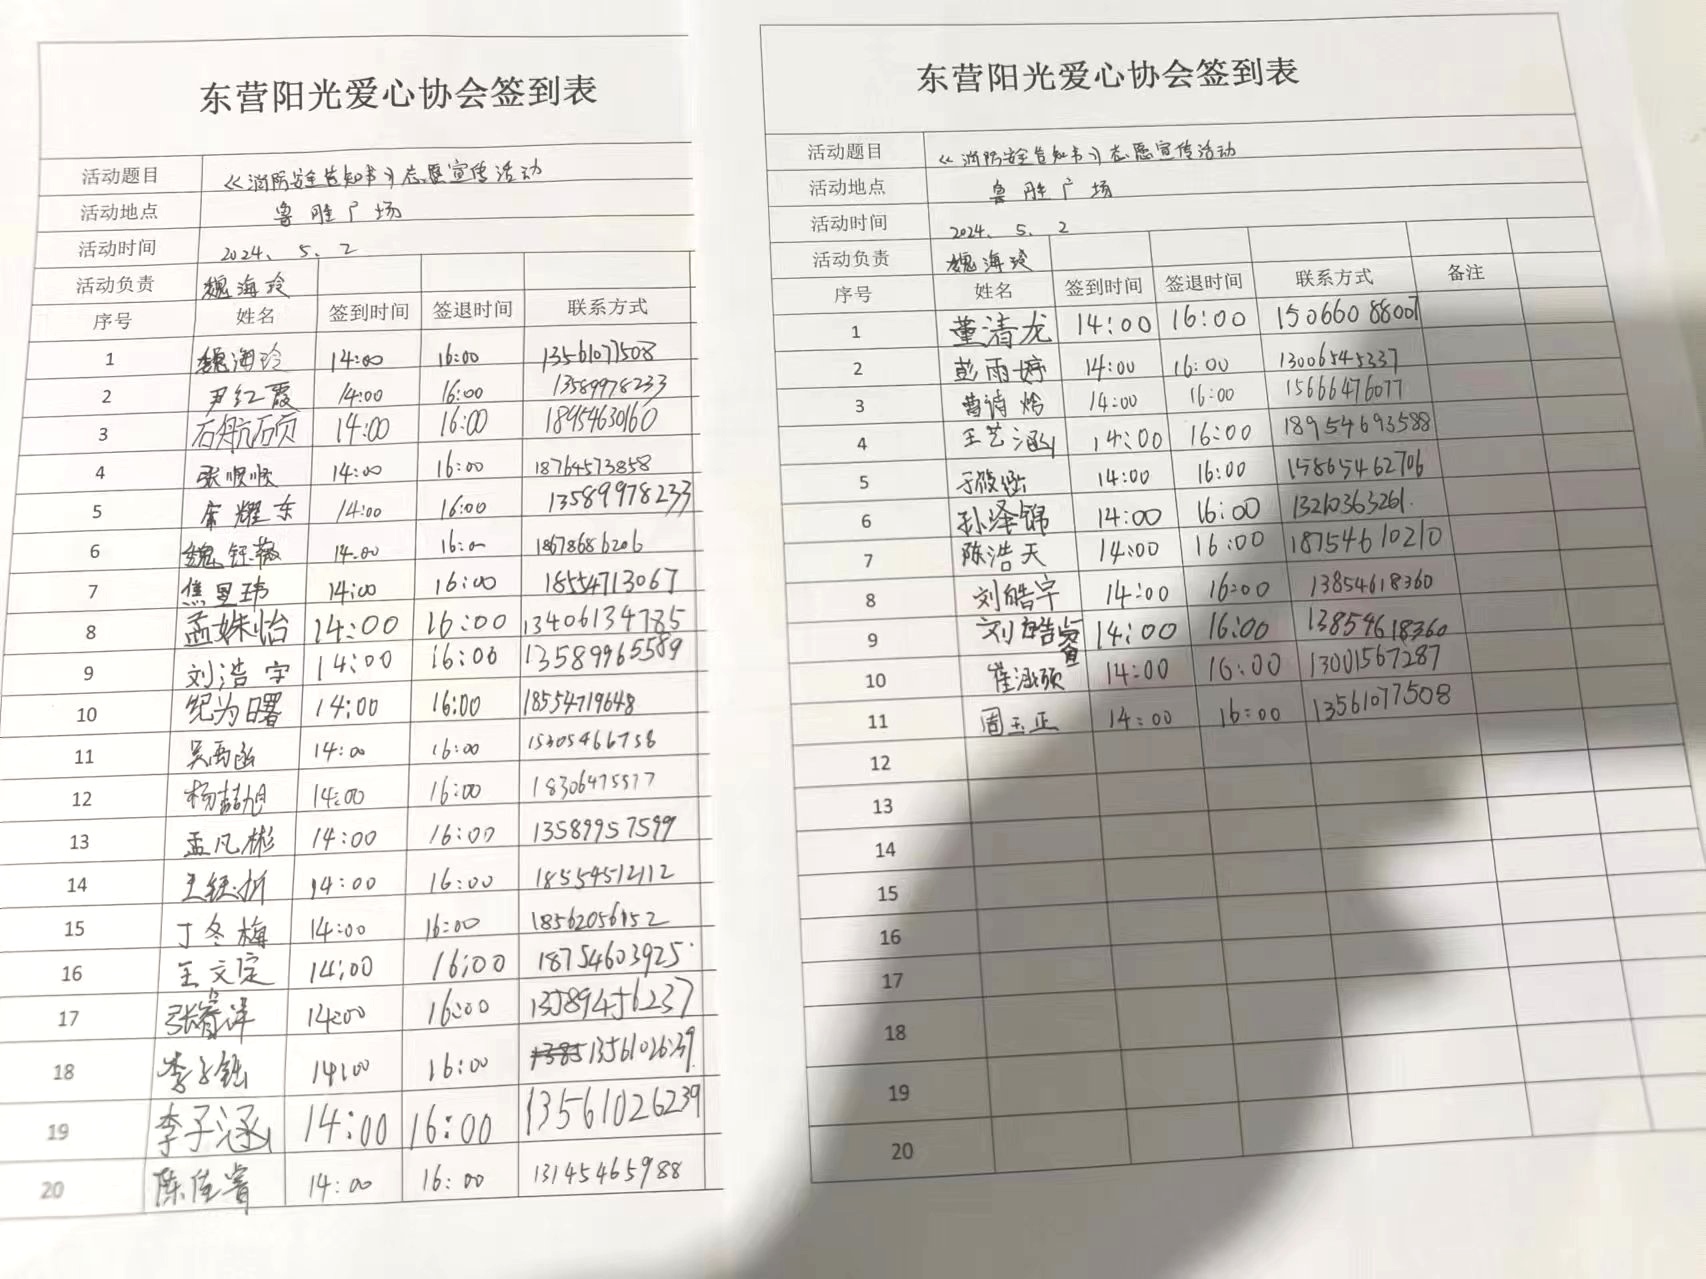 东营阳光爱心协会签到表
活动题目 《消防安全告知书》志愿宣传活动
活动地点 鲁胜广场
活动时间 2024、5、2
活动负责 魏海玲
序号 姓名 签到时间 签退时间 联系方式
1 魏海玲 14:00 16:00 13561077508
2 尹红霞 14:00 16:00 13589978233
3 石航硕 14:00 16:00 18954630160
4 张顺顺 14:00 16:00 18764573858
5 耀东 14:00 16:00 13589978233
6 魏钰薇 14:00 16:00 18678686206
7 焦昱玮 14:00 16:00 18554713067
8 孟姝怡 14:00 16:00 13406134785
9 刘浩宇 14:00 16:00 13589965589
10 纪为曙 14:00 16:00 18554719648
11 吴雨函 14:00 16:00 15305466758
12 杨喆旭 14:00 16:00 18306475577
13 孟凡彬 14:00 16:00 13589957599
14 王 14:00 16:00 18554512112
15 丁冬梅 14:00 16:00 18562056152
16 王文定 14:00 16:00 18754603925
17 张睿洋 14:00 16:00 13589456237
18 李子 14:00 16:00 13561026239
19 李子涵 14:00 16:00 13561026239
20 陈佳睿 14:00 16:00 13145465988
东营阳光爱心协会签到表
活动题目 《消防安全告知书》志愿宣传活动
活动地点 鲁胜广场
活动时间 2024、5、2
活动负责 魏海玲
序号 姓名 签到时间 签退时间 联系方式 备注
1 董清龙 14:00 16:00 15066088007
2 彭雨婷 14:00 16:00 13006545337
3 曹诗 14:00 16:00 15666476077
4 王艺涵 14:00 16:00 18954693588
5 于筱 14:00 16:00 15865462706
6 孙泽锦 14:00 16:00 13210363261
7 陈浩天 14:00 16:00 18754610210
8 刘皓宇 14:00 16:00 13854618360
9 刘皓 14:00 16:00 13854618360
10 崔涵硕 14:00 16:00 13001567287
11 周玉正 14:00 16:00 13561077508
12
13
14
15
16
17
18
19
20